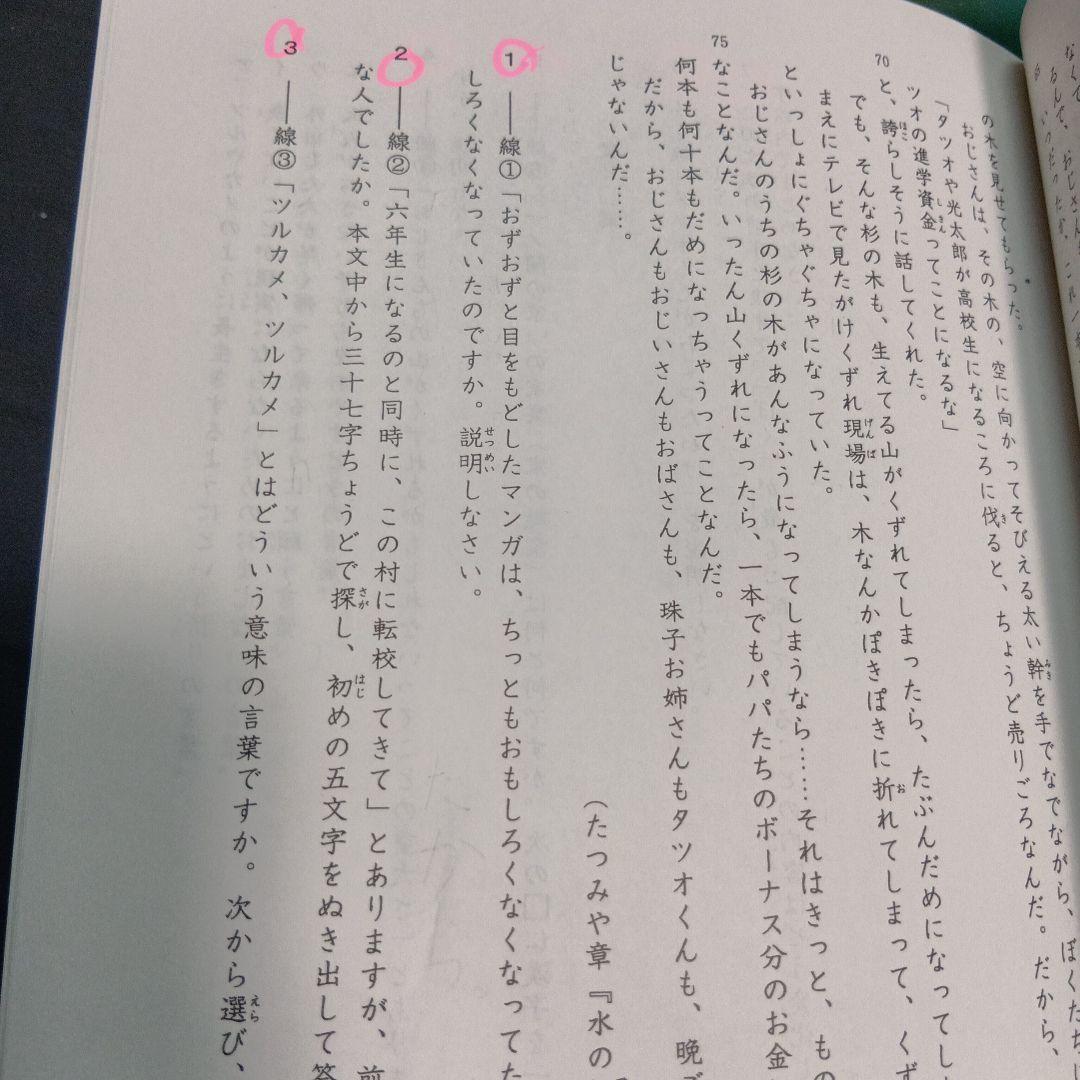 の木を見せてもらった。
おじさんは、その木の、空に向かってそびえる太い幹を手でなでながら、ぼくたち
「タツオや光太郎が高校生になるころに伐ると、ちょうど売りごろなんだ。だから、
ツオの進学資金ってことになるな」
70
と、誇らしそうに話してくれた。
でも、そんな杉の木も、生えてる山がくずれてしまったら、たぶんだめになってし
まえにテレビで見たがけくずれ現場は、木なんかぽきぽきに折れてしまって、くず
といっしょにぐちゃぐちゃになっていた。
おじさんのうちの杉の木があんなふうになってしまうなら……それはきっと、もの
75
なことなんだ。いったん山くずれになったら、一本でもパパたちのボーナス分のお金
何本も何十本もだめになっちゃうってことなんだ。
だから、おじさんもおじいさんもおばさんも、珠子お姉さんもタツオくんも、晩ご
じゃないんだ……。
(たつみや章『水の
1 ――線①「おずおずと目をもどしたマンガは、ちっともおもしろくなくなってた
しろくなくなっていたのですか。説明しなさい。
2 ――線②「六年生になるのと同時に、この村に転校してきて」とありますが、前
な人でしたか。本文中から三十七字ちょうどで探し、初めの五文字をぬき出して答
3 ――線③「ツルカメ、ツルカメ」とはどういう意味の言葉ですか。次から選び、